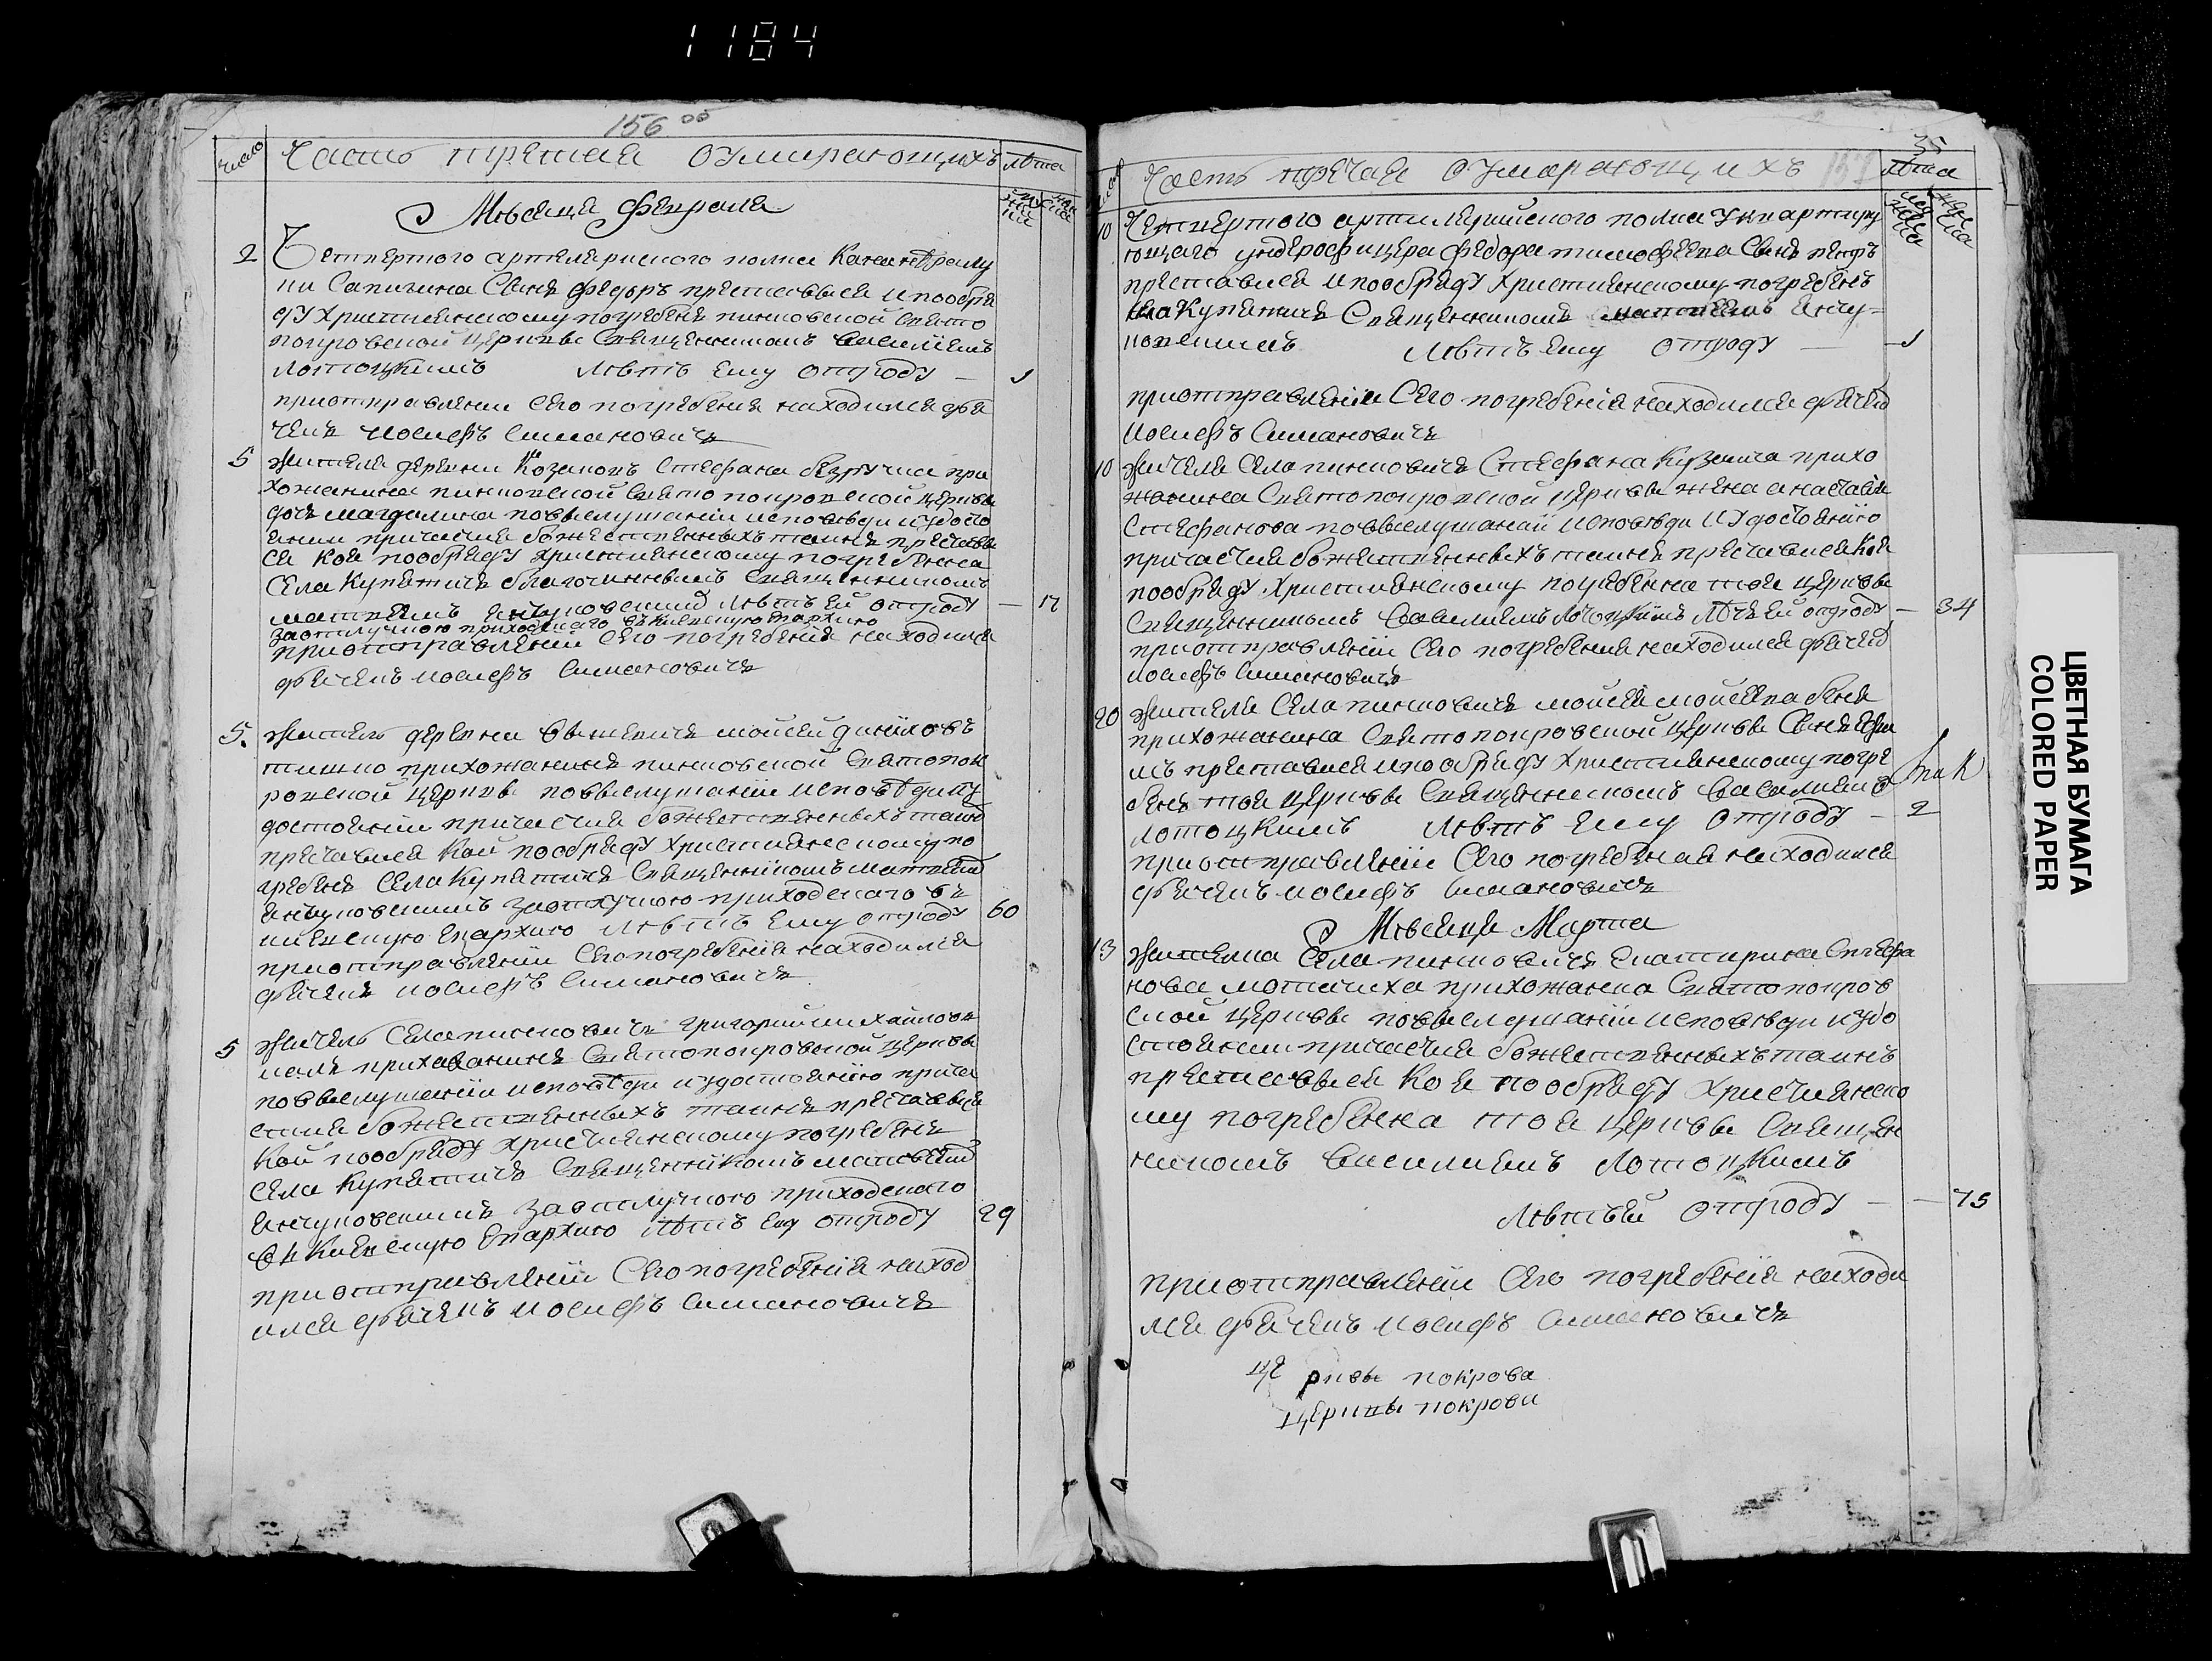 1184
156 об
число
Часть третая оумирающихъ
лѣта
Мѣсяца февраля
2
Четвертого артилериского полка
Сапигина Сынъ федоръ преставися и пообря
ду християнскому погребенъ пинковской Свято
покровской церкви Священникомъ Василиемъ
Лотоцкимъ Лѣтъ ему отроду — 1
приотправлении сего погребения находился дья
чекъ иосифъ Симановичъ
5
жителя деревни Козаковъ Стефана безручка при
хожанина пинковской Свято покровской церквы
дочь магдалина повыслушании исповѣди и удосто
янии причастия божественныхъ таинъ престави
ся коя пообряду християнскому погребенна
Села Купятичъ благочиннымъ Священникомъ
матвеемъ лѣтъ ей отроду — 17
заотлучкою приходскаго въ киевскую епархию
приотправлении сего погребения находился
дьячекъ иосифъ Симановичъ
5.
житель деревни вышевичъ мойсей
прихожанинъ пинковской Святопок
ровской церкви повыслушании исповѣди и у
достоянии причастия божественныхъ таинъ
преставися кой пообряду християнскому по
гребенъ Села Купятичъ Священникомъ матвеем
заотлучкою приходскаго въ
киевскую епархию лѣтъ ему отроду 60
приотправлении сего погребения находился
дьячекъ иосифъ Симановичъ
5
житель Села пинковичъ григорий михайловъ
прихожанинъ Святопокровской церквы
повыслушании исповѣди и удостоянию прича
стия божественныхъ таинъ преставися
кой пообряду християнскому погребенъ
Села Купятичъ Священникомъ матвѣем
заотлучкою приходскаго
въ киевскую епархию лѣтъ ему отроду 29
приотправлении сего погребения наход
ился дьячекъ иосифъ Симановичъ
35
число
Часть третая оумирающихъ 157
лѣта
10
Четвертого артилерийского полка уквартиру
ющаго ундерофицера федора тимофеева Сынъ
преставися и пообряду християнскому погребенъ
Села Купятичъ Священникомъ матвеемъ
Лѣтъ ему отроду — 1
приотправлении сего погребения находился дьячекъ
иосифъ Симановичъ
10
жителя Села пинковичъ Стефана Кузмича прихо
жанина Святопокровской церквы жена анастасия
Стефанова повыслушании исповѣди и удостоянию
причастия божественныхъ таинъ преставися коя
пообряду християнскому погребенна тоя церквы
Священникомъ Василиемъ Лотоцкимъ лѣтъ ей отроду — 34
приотправлении сего погребения находился дьячек
иосифъ Симановичъ
20
жителя Села пинковичъ мойсея мойсеева
прихожанина Святопокровской церквы Сынъ
преставися и пообряду християнскому погре
бенъ тоя церквы Священникомъ Василием
Лотоцкимъ Лѣтъ ему отроду — 2
приотправлении сего погребения находился
дьячекъ иосифъ Симановичъ
Мѣсяца Марта
13
жителка Села пинковичъ екатирина Стефа
нова прихожанка Святопокров
ской церквы повыслушании исповѣди и удо
стоянии причастия божественныхъ таинъ
преставися коя пообряду християнско
му погребенна тоя церквы Священ
никомъ Василиемъ Лотоцкимъ
Лѣтъ ей отроду — — 75
приотправлении сего погребения находи
лся дьячекъ иосифъ Симановичъ
це рквы покрова
церквы покрови
ЦВЕТНАЯ БУМАГА
COLORED PAPER